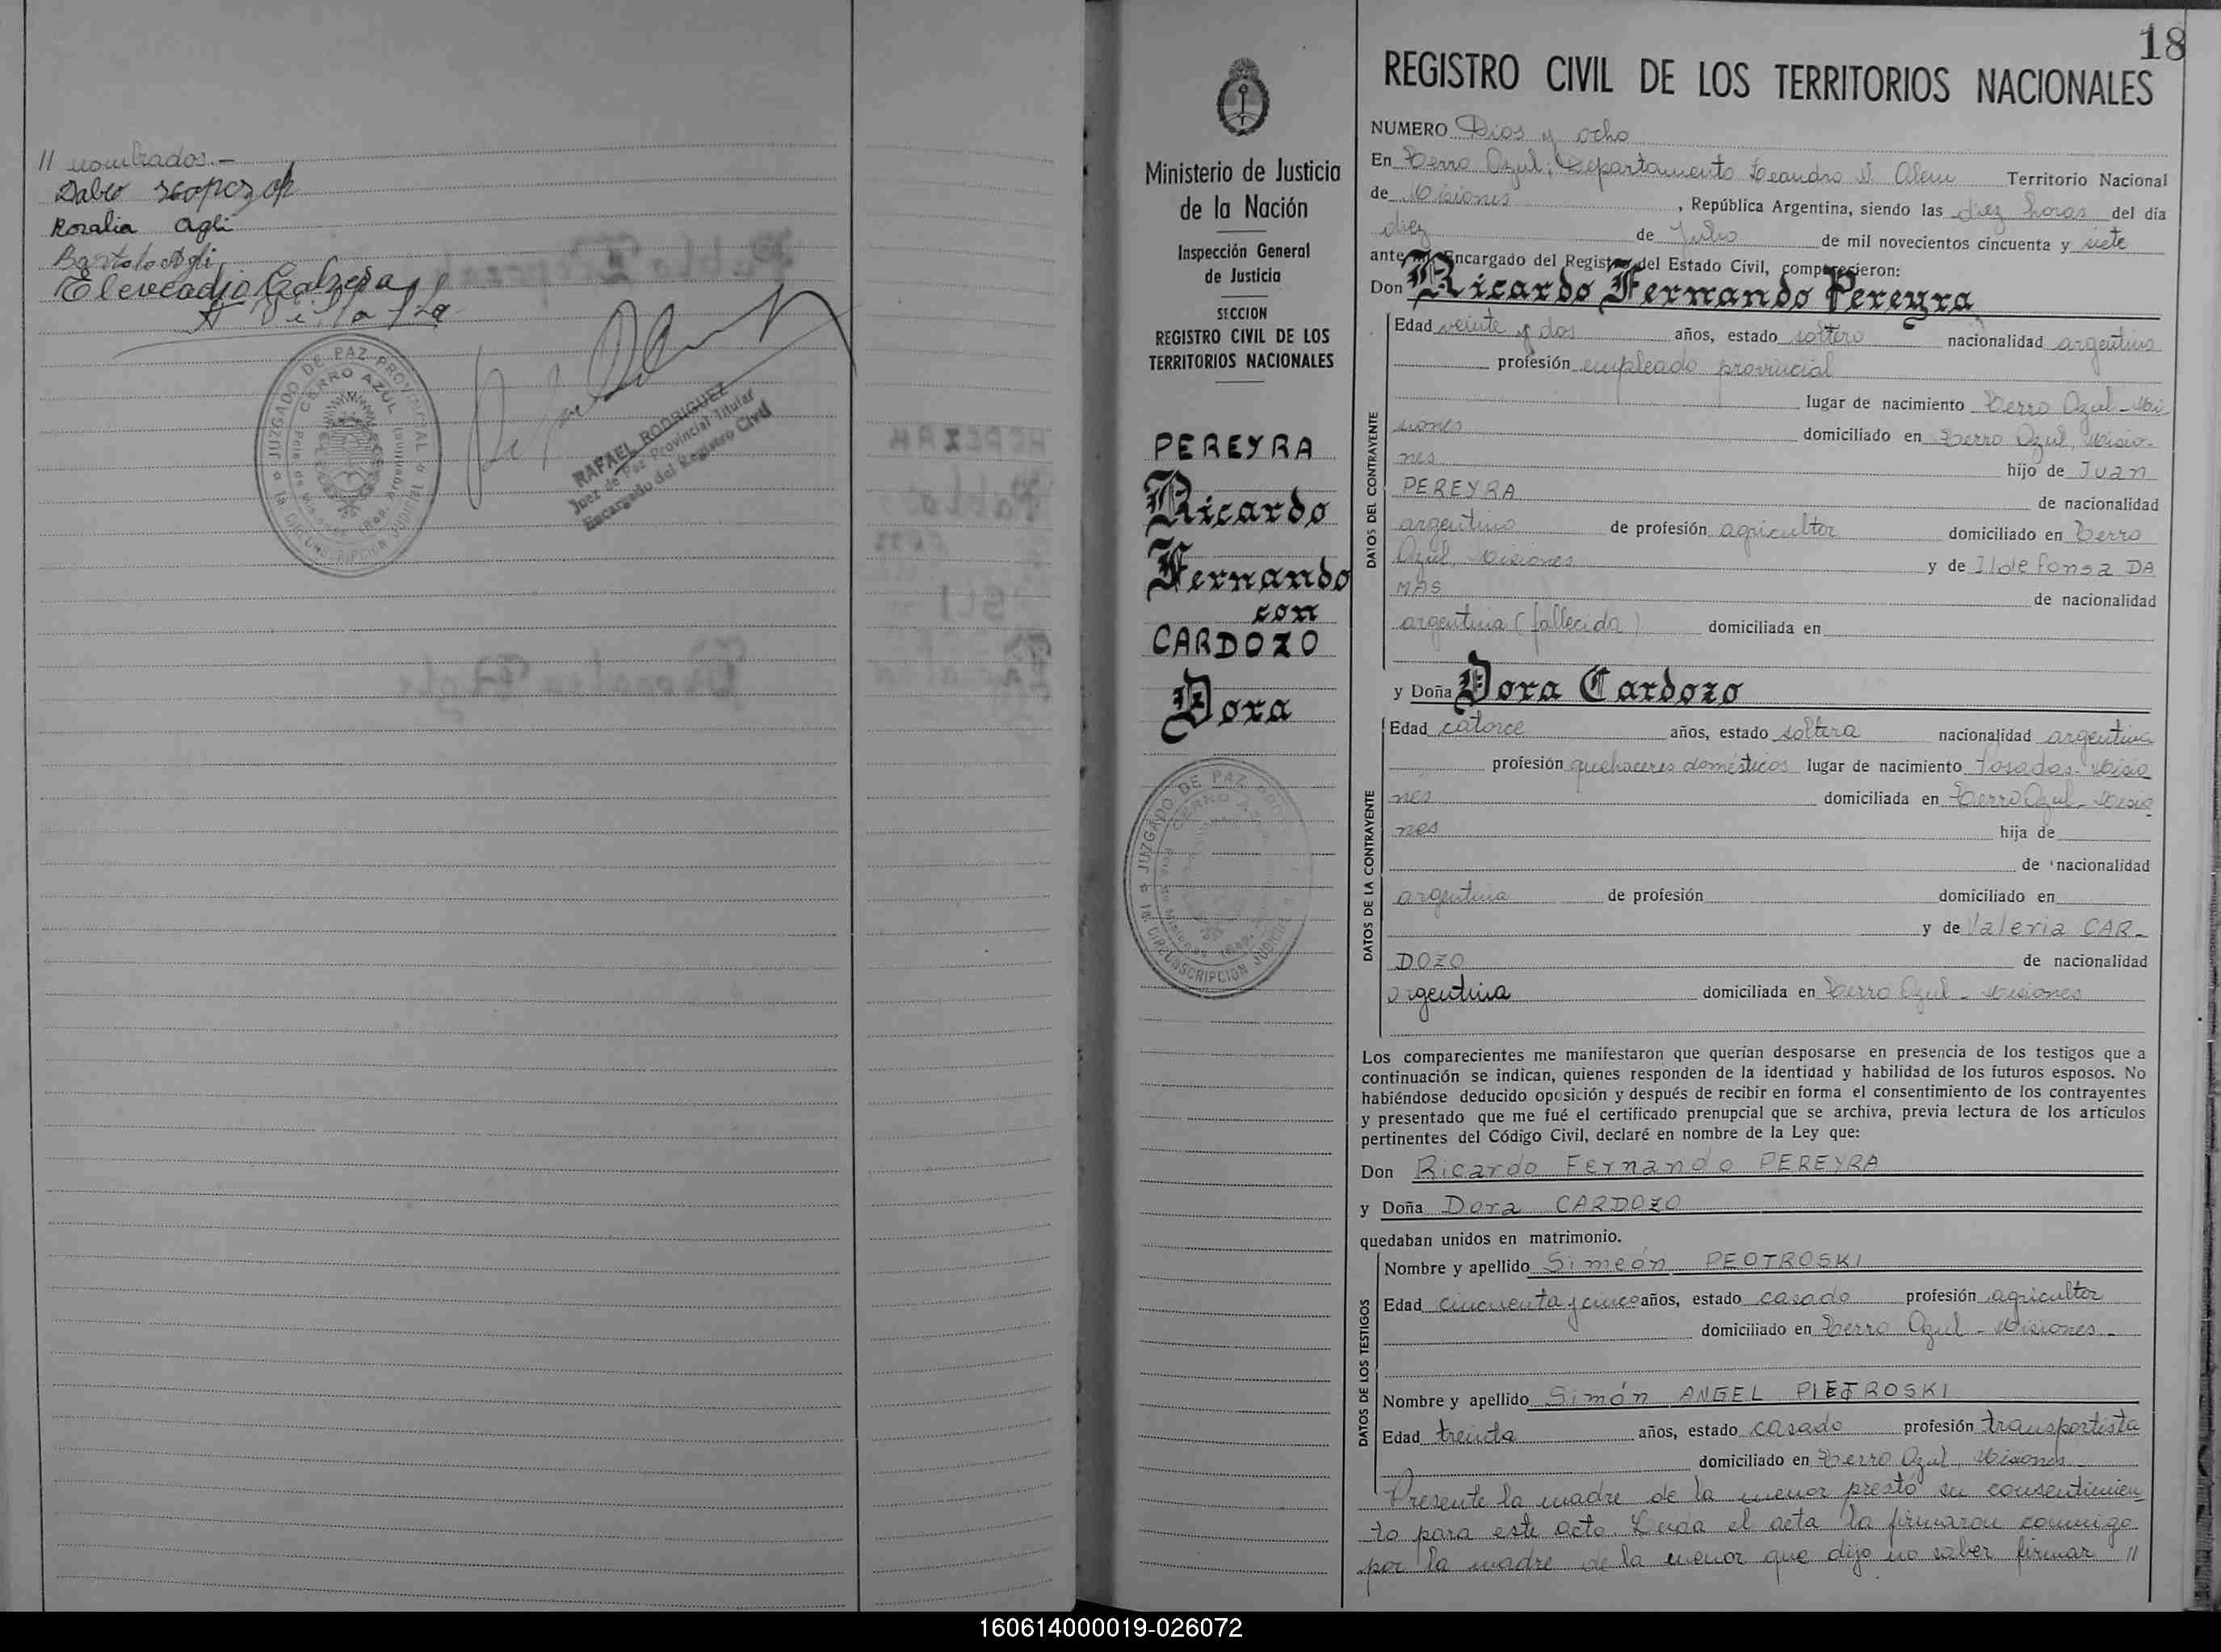 // nombrados.-
Rosalia Agli
Bartolo Agli
Eleucadio Cabrera
JUZGADO DE PAZ PROVINCIAL
CERRO AZUL
1a. CIRCUNSCRIPCION JUDICIAL
RAFAEL RODRIGUEZ
Juez de Paz Provincial Titular
Encargado del Registro Civil
18
Ministerio de Justicia
de la Nación
Inspección General
de Justicia
SECCION
REGISTRO CIVIL DE LOS
TERRITORIOS NACIONALES
PEREYRA
Ricardo
Fernando
con
CARDOZO
Dora
JUZGADO DE PAZ
CERRO AZUL
1a. CIRCUNSCRIPCION JUDICIAL
REGISTRO CIVIL DE LOS TERRITORIOS NACIONALES
NUMERO Dios y ocho
En Cerro Azul, Departamento Leandro N. Alem Territorio Nacional
de Misiones, República Argentina, siendo las diez horas del día
diez de Julio de mil novecientos cincuenta y siete
ante mí Encargado del Registro del Estado Civil, comparecieron:
Don Ricardo Fernando Pereyra
DATOS DEL CONTRAYENTE
Edad veinte y dos años, estado soltero nacionalidad argentino
profesión empleado provincial
lugar de nacimiento Cerro Azul - Mi
siones domiciliado en Cerro Azul, Misio-
nes hijo de Juan
PEREYRA de nacionalidad
argentino de profesión agricultor domiciliado en Cerro
Azul, Misiones y de Ildefonsa DA
MAS de nacionalidad
argentina (fallecida) domiciliada en
y Doña Dora Cardozo
DATOS DE LA CONTRAYENTE
Edad catorce años, estado soltera nacionalidad argentina
profesión quehaceres domésticos lugar de nacimiento Posadas - Misio
nes domiciliada en Cerro Azul - Misio
nes hija de
de nacionalidad
argentina de profesión domiciliado en
y de Valeria CAR-
DOZO de nacionalidad
argentina domiciliada en Cerro Azul - Misiones
Los comparecientes me manifestaron que querían desposarse en presencia de los testigos que a
continuación se indican, quienes responden de la identidad y habilidad de los futuros esposos. No
habiéndose deducido oposición y después de recibir en forma el consentimiento de los contrayentes
y presentado que me fué el certificado prenupcial que se archiva, previa lectura de los artículos
pertinentes del Código Civil, declaré en nombre de la Ley que:
Don Ricardo Fernando PEREYRA
y Doña Dora CARDOZO
quedaban unidos en matrimonio.
DATOS DE LOS TESTIGOS
Nombre y apellido Simeón PEOTROSKI
Edad cincuenta y cinco años, estado casado profesión agricultor
domiciliado en Cerro Azul - Misiones -
Nombre y apellido Simón ANGEL PIETROSKI
Edad treinta años, estado casado profesión transportista
domiciliado en Cerro Azul, Misiones -
Presente la madre de la menor prestó su consentimien
to para este acto. Leída el acta la firmaron conmigo
por la madre de la menor que dijo no saber firmar //
160614000019-026072